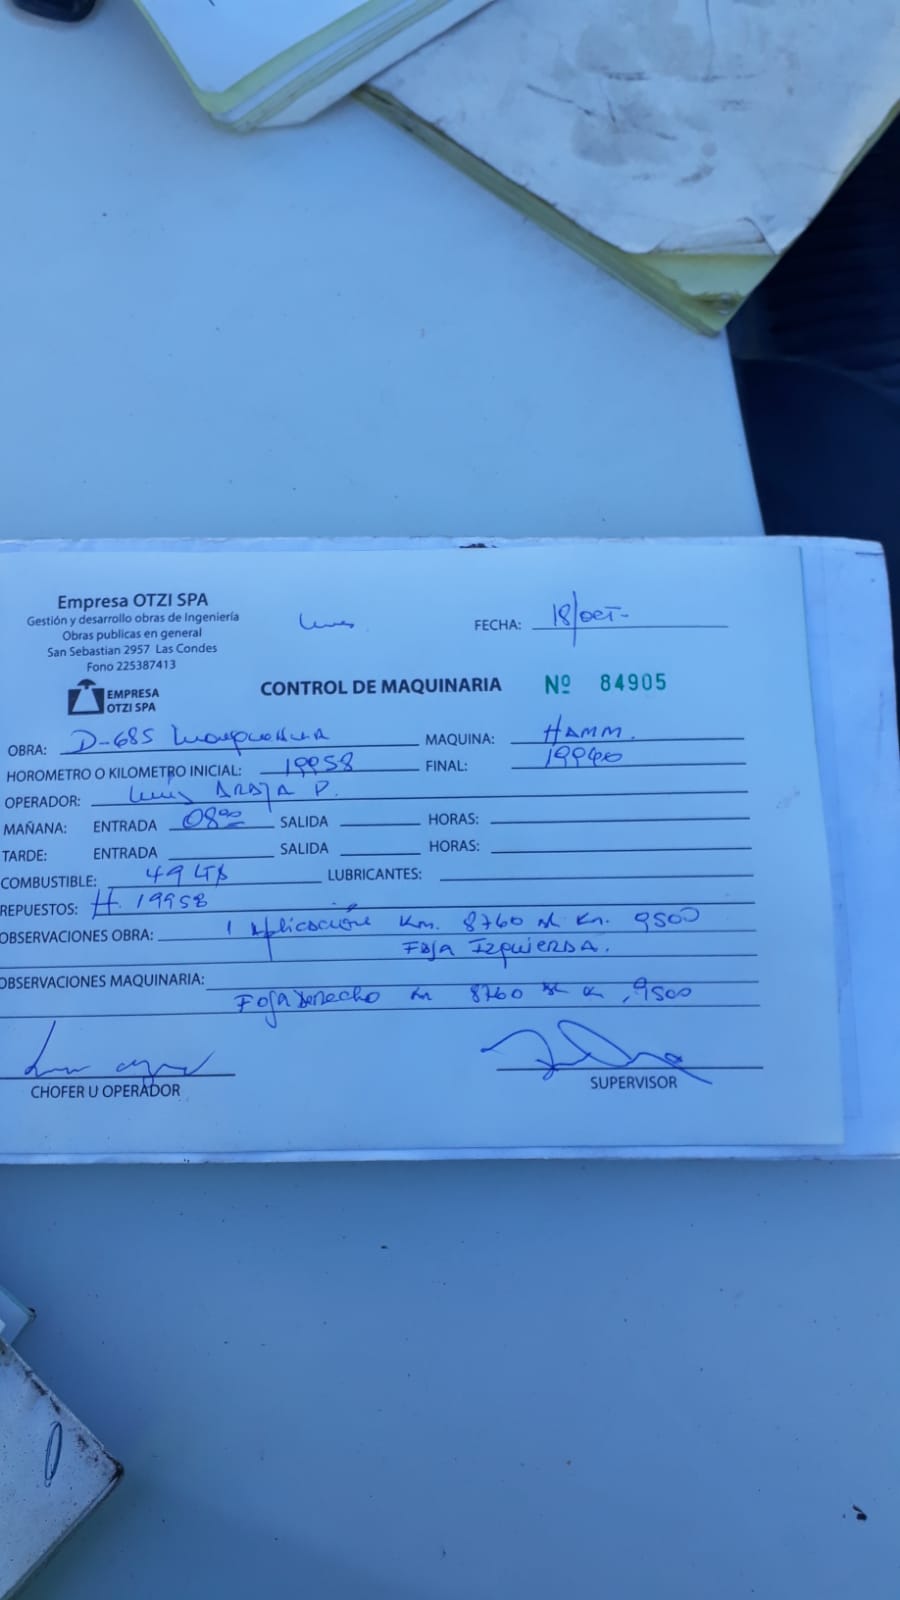 Empresa OTZI SPA
Gestión y desarrollo obras de Ingeniería
Obras publicas en general
San Sebastian 2957 Las Condes
Fono 225387413
EMPRESA
OTZI SPA
Lunes
FECHA: 18/OCT-
CONTROL DE MAQUINARIA Nº 84905
OBRA: D-685 MAQUINA: HAMM.
HOROMETRO O KILOMETRO INICIAL: 19958 FINAL:
OPERADOR: Luis ARAYA P.
MAÑANA: ENTRADA 08⁰⁰ SALIDA HORAS:
TARDE: ENTRADA SALIDA HORAS:
COMBUSTIBLE: 49 LTS LUBRICANTES:
REPUESTOS: H. 19958
OBSERVACIONES OBRA: 1 Aplicación Km. 8760 al Km. 9500
FAJA IZQUIERDA.
OBSERVACIONES MAQUINARIA:
FAJA Derecho Km 8760 al Km 9500
CHOFER U OPERADOR
SUPERVISOR